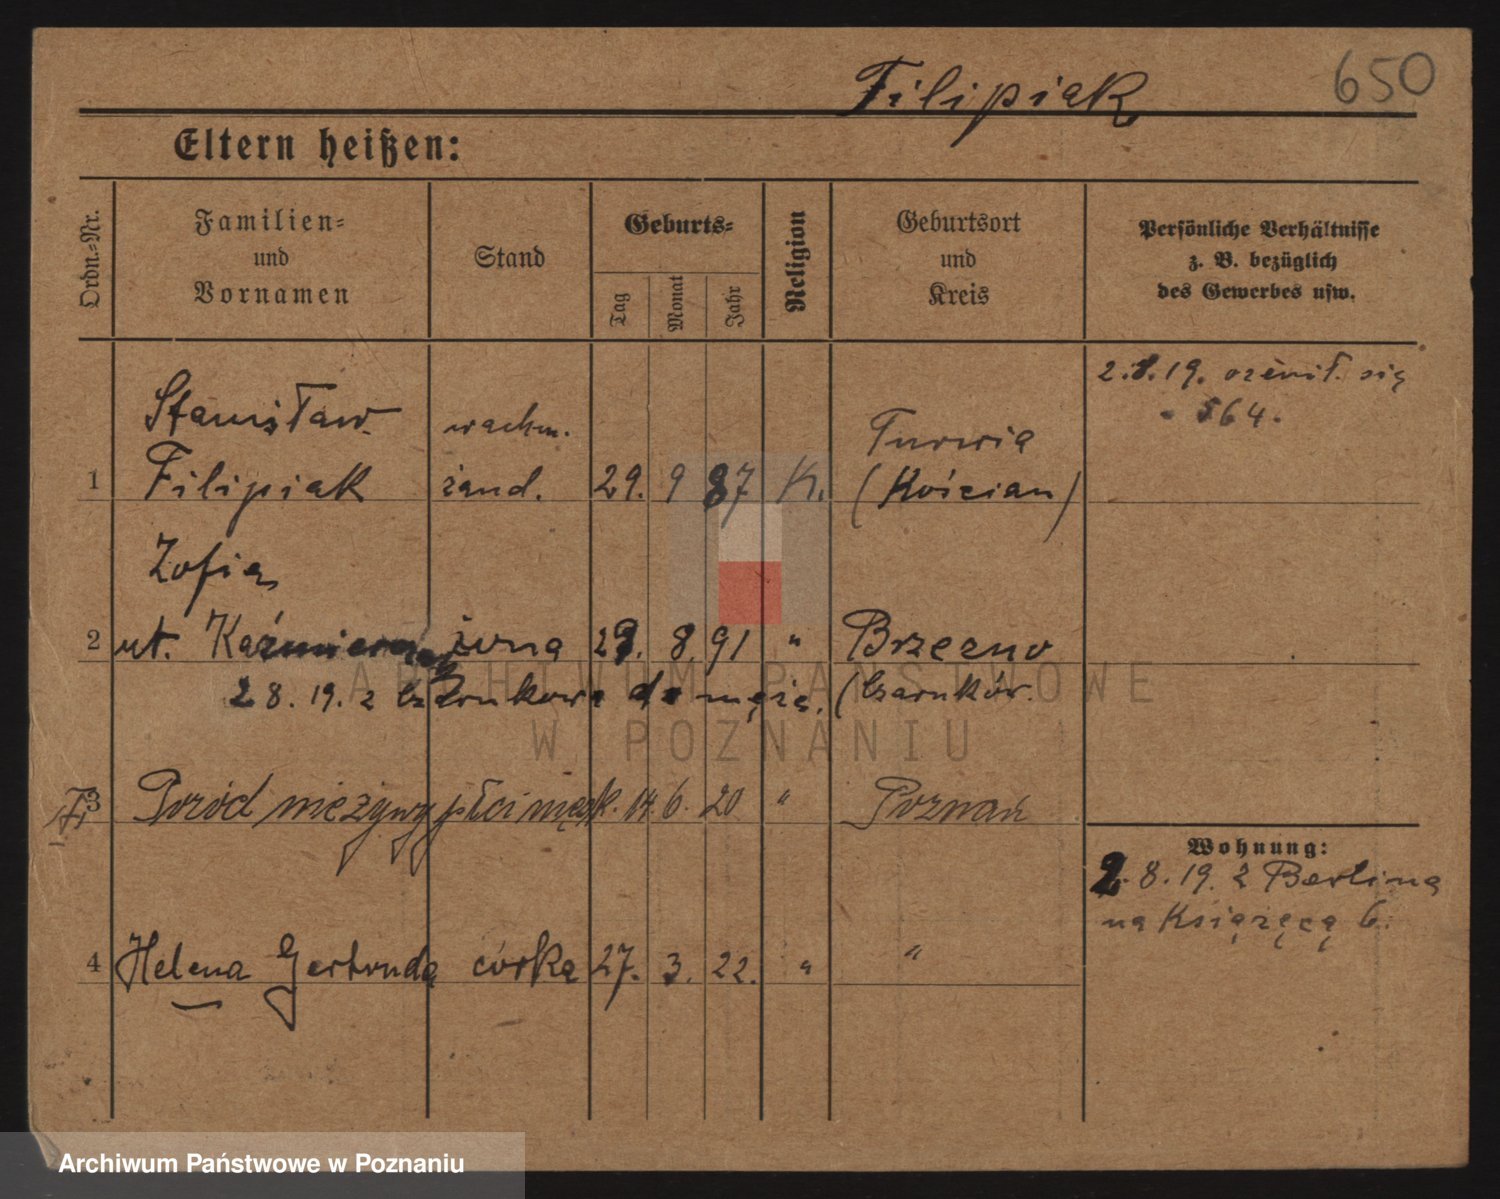 650
Filipiak
Eltern heißen:
Ordn.-Nr.
Familien-
und
Vornamen
Stand
Geburts-
Tag
Monat
Jahr
Religion
Geburtsort
und
Kreis
Persönliche Verhältnisse
z. B. bezüglich
des Gewerbes usw.
2.8.19. ożenił się
564.
Stanisław wachm. Turwia
1 Filipiak żand. 29. 9 87 K. (Kościan)
Zofia
2 ur. żona 8. 91 " Brzezno
2 8. 19. z Czarnkowa do męża. (Czarnków.
3 Poród nieżywy płci męsk. 14. 6. 20 " Poznań
Wohnung:
2. 8. 19. z Berlina
na Książęcą 6.
4 Helena Gertruda córka 27. 3. 22. " "
ARCHIWUM PAŃSTWOWE
W POZNANIU
Archiwum Państwowe w Poznaniu